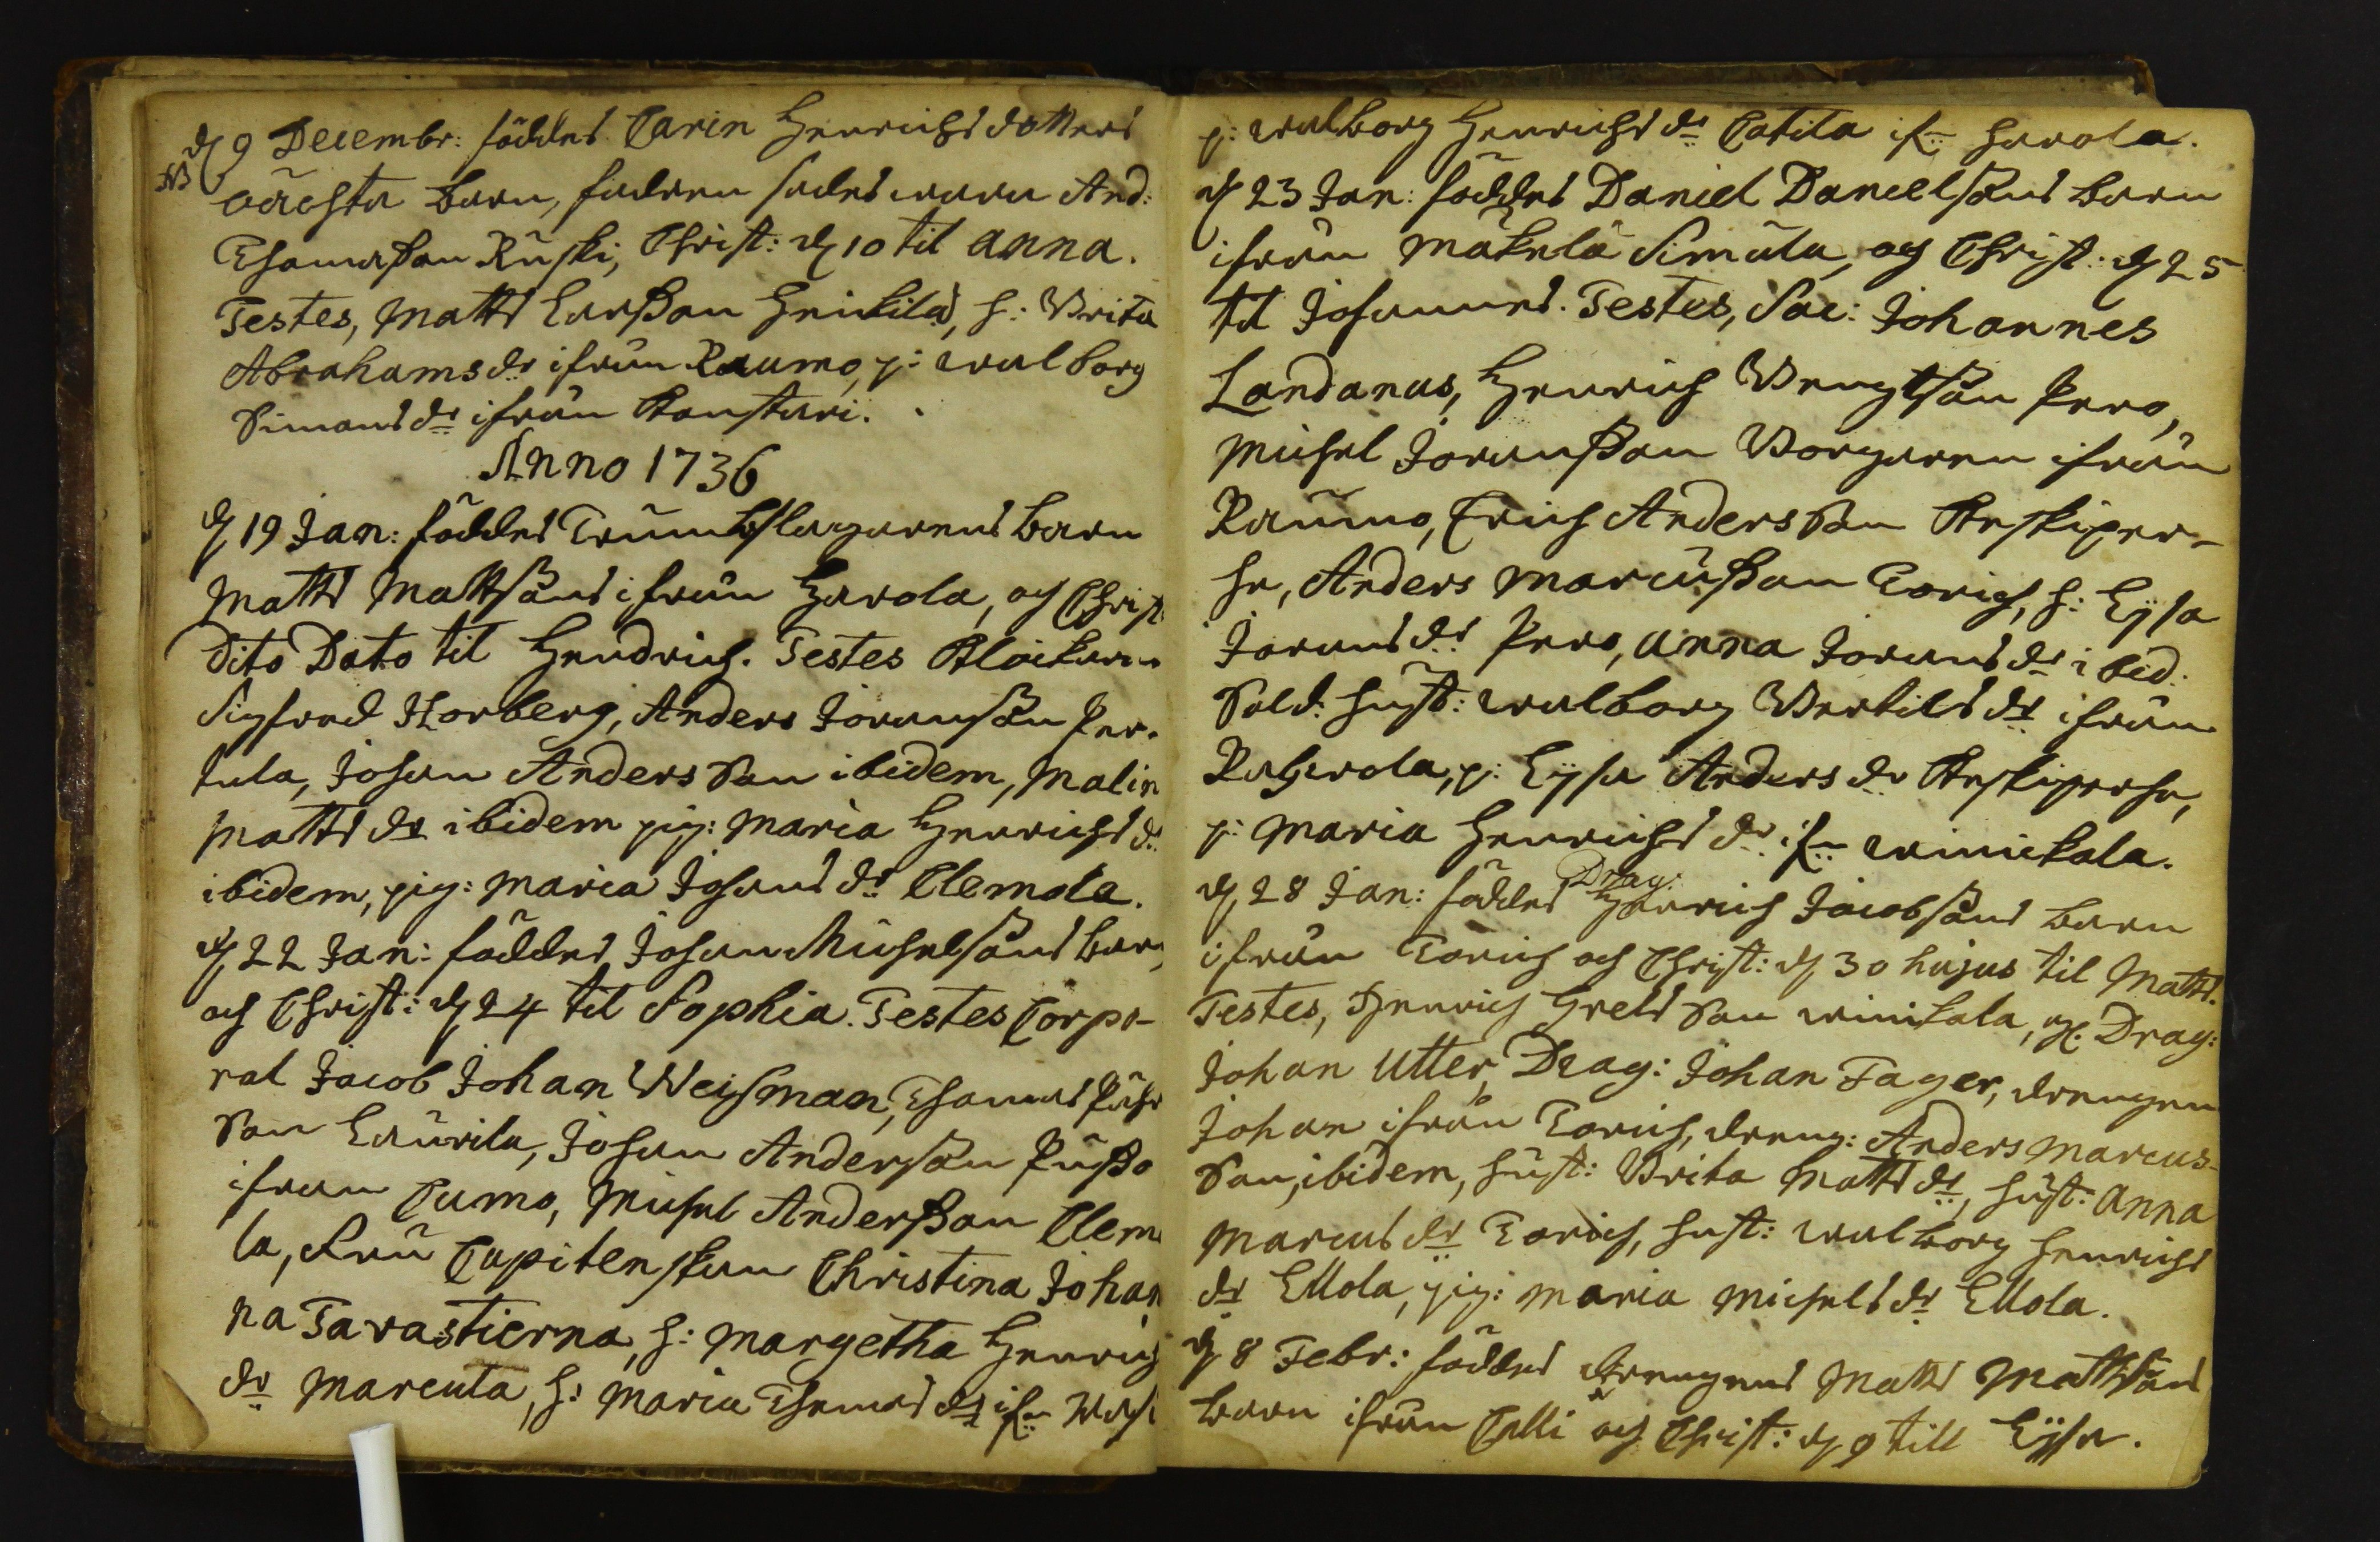 d 9 Decembr: föddes Carin Henrichs dotters
NB oächta barn, fadren sades wara And:
Thomasson Ruski, Christ: d 10 til Anna.
Testes, Matts Larsson Heickilä, h: Brita
Abrahams dr ifrån Raumo, p: walborg
Simons dr ifrån
Anno 1736
d 19 Jan: föddes Trumbslagarens barn
Matts Mattsons ifrån Harola, och Christ:
dito Dato til Hendrich. Testes Klockaren
Sigfred Horberg, Anders Joransson Per-
tula, Johan Andersson ibidem, Malin
Matts dr ibidem pig: Maria Henrichs dr
ibidem, pig: Maria Johans dr Clemola.
d 22 Jan: föddes Johan Michelsons barn,
och Christ: d 24 til Sophia. Testes Corpo-
ral Jacob Johan Weisman, Thomas
son Laurila, Johan Andersson Pusso
ifrån Cumo, Michel Andersson Clemo
la, Fru Capitenskan Christina Johan
na Tavastierna, h: Margetha Henrichs
dr Marcula, h: Maria Thomas dr ifrn
p: walborg Henrichs dr Cotila ifrn Harola.
d 23 Jan: föddes Daniel Danielsons barn
ifrån Mäkelä Simula, och Christ: d 25
til Johannes. Testes, Sac: Johannes
Landanus, Henrich Bengtson Pero,
Michel Joransson Borgaren ifrån
Raumo, Erich Andersson Keskiper-
he, Anders Marcusson Torich, h: Lysa
Jorans dr Pero, Anna Jorans dr ibid.
Sold: hust: walborg Bertils dr ifrån
Rahwola, p: Lysa Anders dr Keskiperhe,
p: Maria Henrichs dr ifrn winickala.
d 28 Jan: föddes Drag: Henrich Jacobsons barn
ifrån Torich och Christ: d 30 hujus til Matts.
Testes, Henrich Grelsson winikala, Drag:
Johan Utter, Drag: Johan Fager, drengen
Johan ifrån Torich, dreng: Anders Marcus-
son, ibidem, hust: Brita Matts dr, hust: Anna
Marcus dr Torich, hust: walborg Henrichs
dr Ellola, pig: Maria Michels dr Ellola.
d 8 Febr: föddes drengens Matts Mattsons
barn ifrån Calli och Christ: d 9 till Lysa.